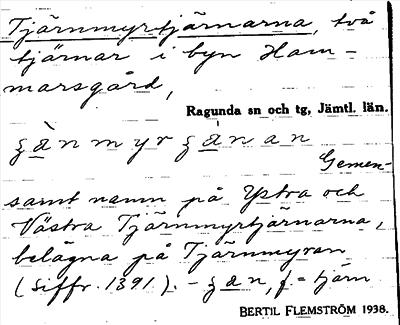 Tjärnmyrtjärnarna, två
tjärnar i byn Ham-
marsgård,
Ragunda sn och tg, Jämtl. län.
ʒànmyrʒànan
Gemen-
samt namn på Ystra och
Västra Tjärnmyrtjärnarna,
belägna på Tjärnmyran
(siffr. 1391). – ʒan, f. = tjärn
BERTIL FLEMSTRÖM 1938.